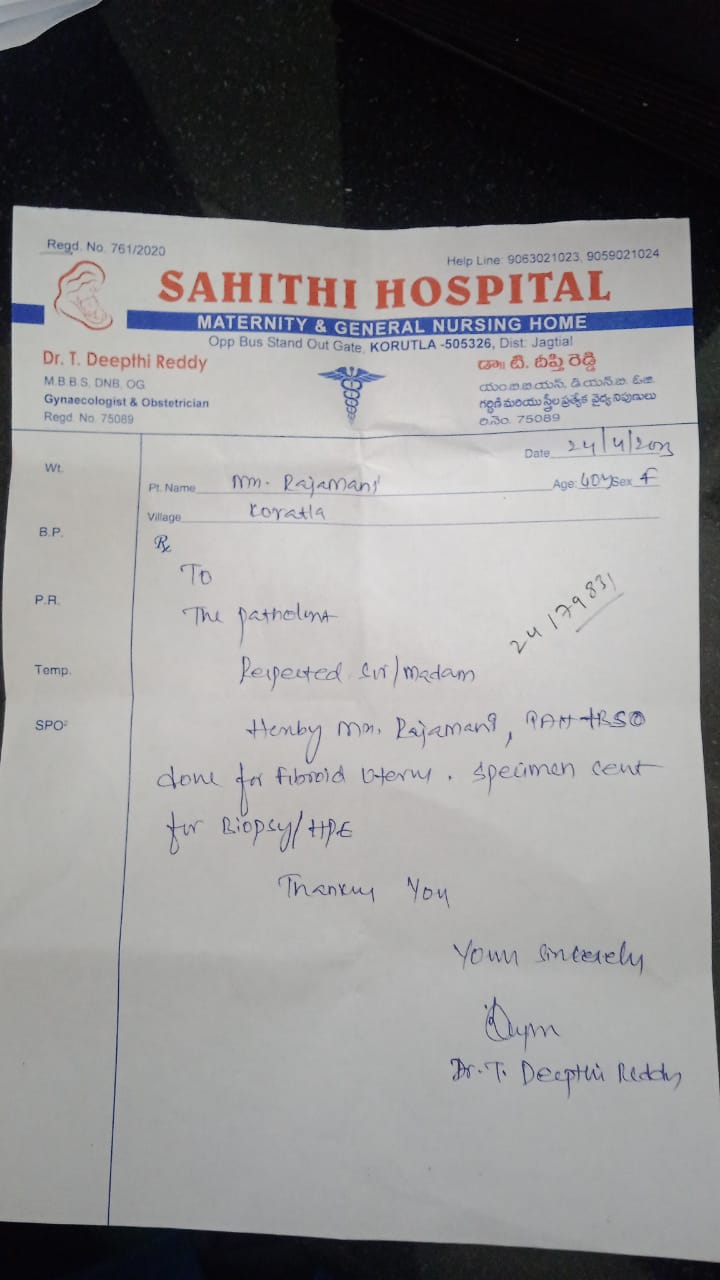 Regd. No. 761/2020
Help Line: 9063021023, 9059021024
SAHITHI HOSPITAL
MATERNITY & GENERAL NURSING HOME
Opp Bus Stand Out Gate, KORUTLA -505326, Dist: Jagtial
Dr. T. Deepthi Reddy
M.B.B.S, DNB, OG
Gynaecologist & Obstetrician
Regd. No. 75089
డా॥ టి. దీప్తి రెడ్డి
యం.బి.బి.యస్, డి.యన్.బి. ఓ.జి.
గర్భిణి మరియు స్త్రీల ప్రత్యేక వైద్య నిపుణులు
రి.నెం. 75089
Date 24/4/2023
Pt. Name Mrs. Rajamani
Age: 40y Sex F
Village Koratla
Wt.
B.P.
P.R.
Temp.
SPO²
Rx
To
The Pathologist
24179831
Respected Sir/Madam
Hereby Mrs. Rajamani, +BSO
done for Fibroid Uterus. Specimen sent
for Biopsy/HPE
Thanking You
Yours sincerely
Dr. T. Deepthi Reddy